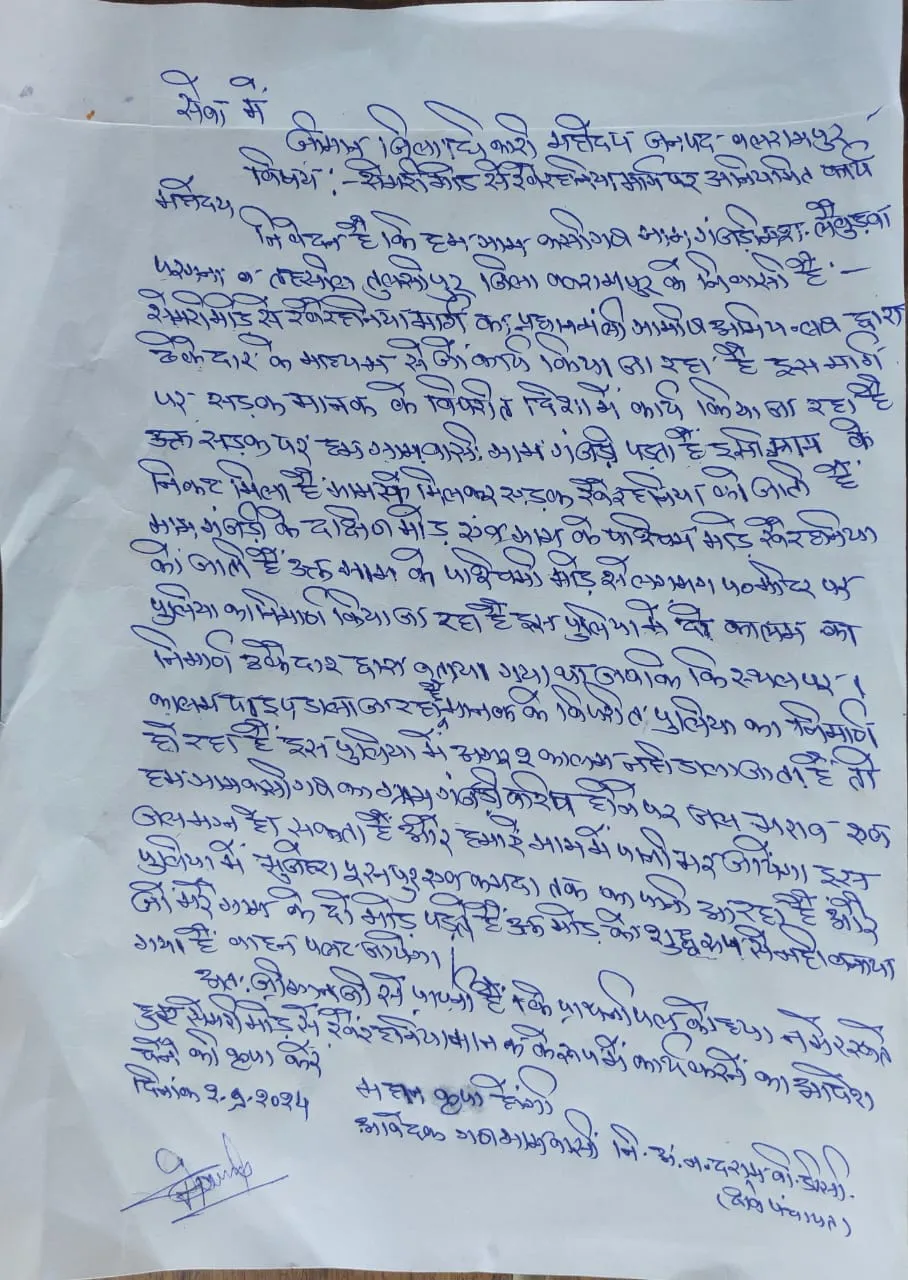 सेवा में
श्रीमान जिलाधिकारी महोदय जनपद-बलरामपुर
विषय :- सेमरी मोड से खैरहनिया मार्ग पर अनियमित कार्य
महोदय
निवेदन है कि हम ग्राम वासीगण ग्राम गंजड़ी
परगना व तहसील तुलसीपुर जिला बलरामपुर के निवासी है -
सेमरी मोड से खैरहनिया मार्ग का प्रधानमंत्री द्वारा
ठेकेदार के माध्यम से जो कार्य किया जा रहा है इस मार्ग
पर सड़क मानक के विपरीत दिशा में कार्य किया जा रहा है
उक्त सड़क पर हम ग्रामवासी ग्राम गंजड़ी पड़ता है इसी ग्राम के
निकट मिला है ग्राम से मिलकर सड़क खैरहनिया को जाती है
ग्राम गंजड़ी के दक्षिण मोड़ एवं ग्राम के पश्चिम मोड़ खैरहनिया
को जाते है उक्त ग्राम के पश्चिमी मोड़ से लगभग मीटर पर
पुलिया का निर्माण किया जा रहा है इस पुलिया में दो कालम का
निर्माण ठेकेदार द्वारा बताया गया था जबकि कि स्थल पर 1
कालम डाला जा रहा है मानक के विपरीत पुलिया का निर्माण
हो रहा है इस पुलिया में अगर 2 कालम नही डाला जाता है तो
हम ग्रामवासीगण का ग्राम गंजड़ी करीब होने पर जल
जलमग्न हो सकता है और हमारे ग्राम में पानी भर जायेगा इस
पुलिया में तक का पानी आ रहा है और
जो मेरे ग्राम के दो मोड़ पड़ते है उक्त मोड़ को शुद्ध रूप से नही बनाया
गया है वाहन पलट जायेगा।
अतः श्रीमान जी से प्रार्थना है कि प्रार्थना पत्र को
हुए सेमरी मोड़ से खैरहनिया मानक के रूप में कार्य करने का आदेश
देने की कृपा करें
दिनांक 2.9.2024 महान कृपा होगी
आवेदक गण ग्रामवासी
(क्षेत्र पंचायत)